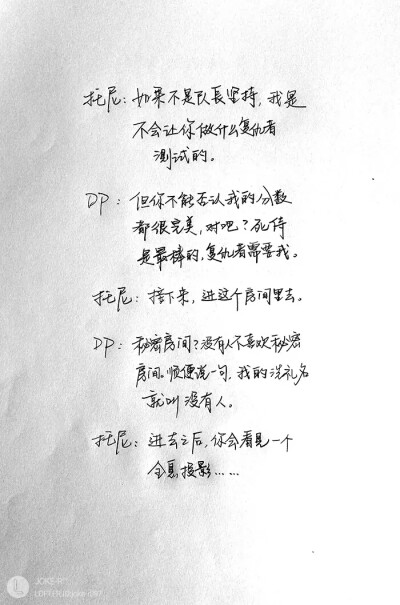 托尼：如果不是队長坚持，我是
不会让你做什么复仇者
测试的。
DP：但你不能否认我的分数
都很完美，对吧？死侍
是最棒的，复仇者需要我。
托尼：接下来，进这个房间里去。
DP：秘密房间？没有人不喜欢秘密
房间。顺便说一句，我的洗礼名
就叫没有人。
托尼：进去之后，你会看见一个
全息投影……
JOKE-R